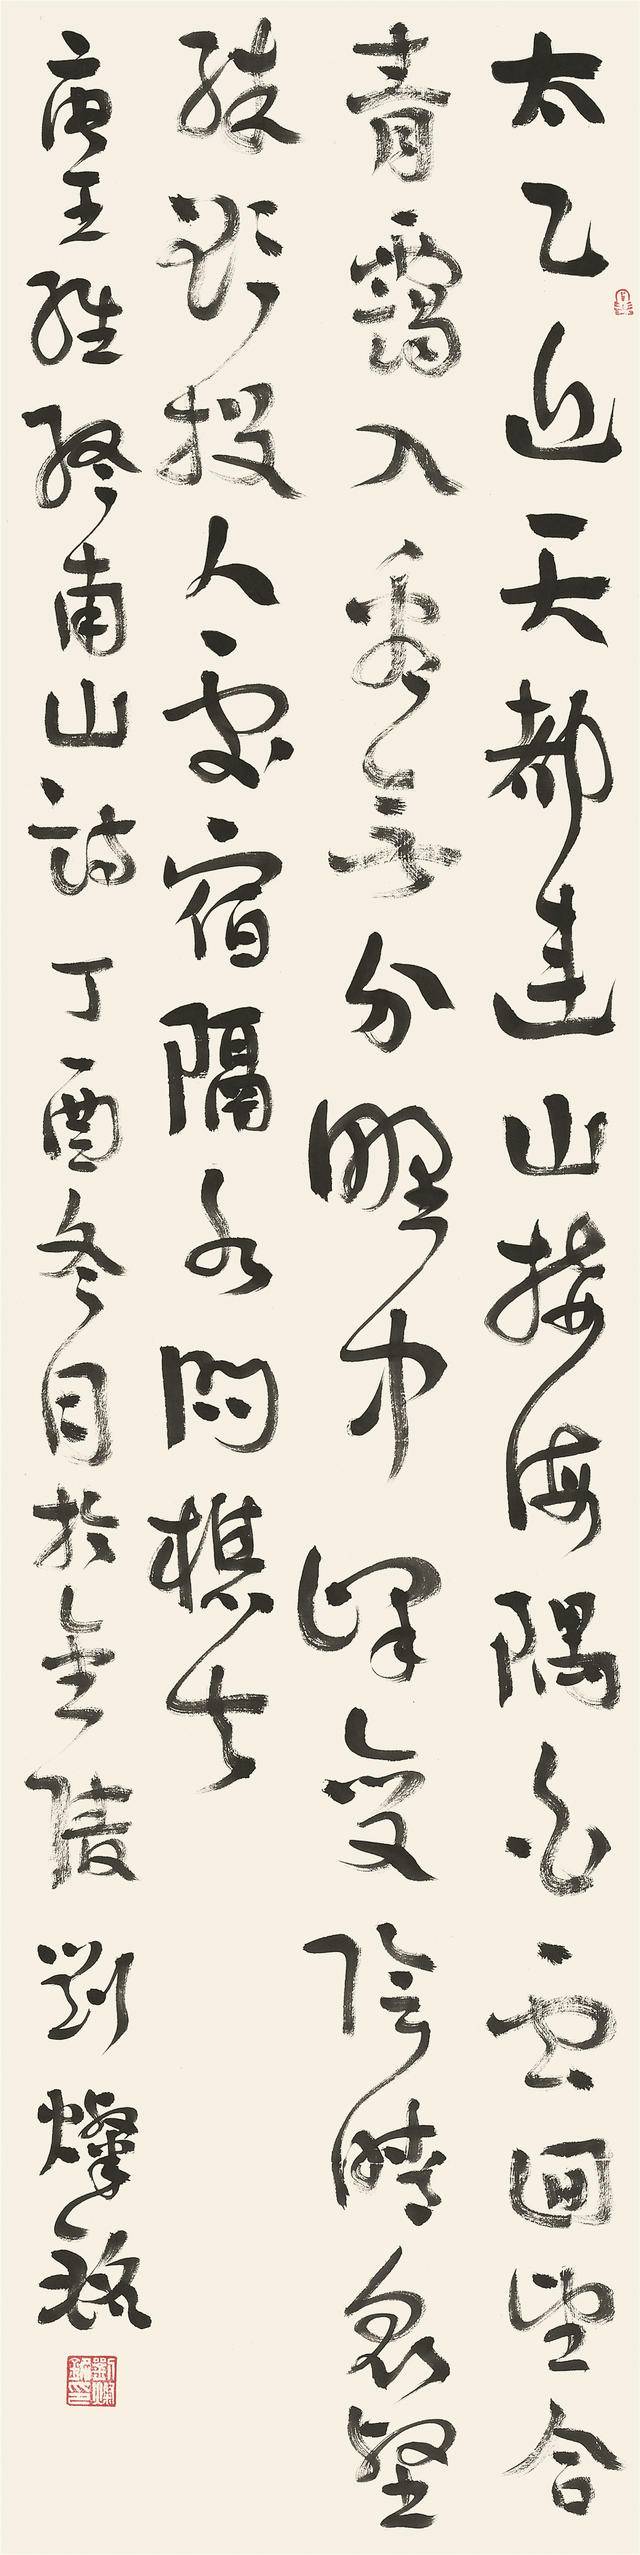 太乙近天都連山接海隅白雲迴望合
青靄入看無分野中峰變陰晴衆壑
殊欲投人處宿隔水問樵夫
唐王維終南山詩丁酉冬月於金陵劉燦銘